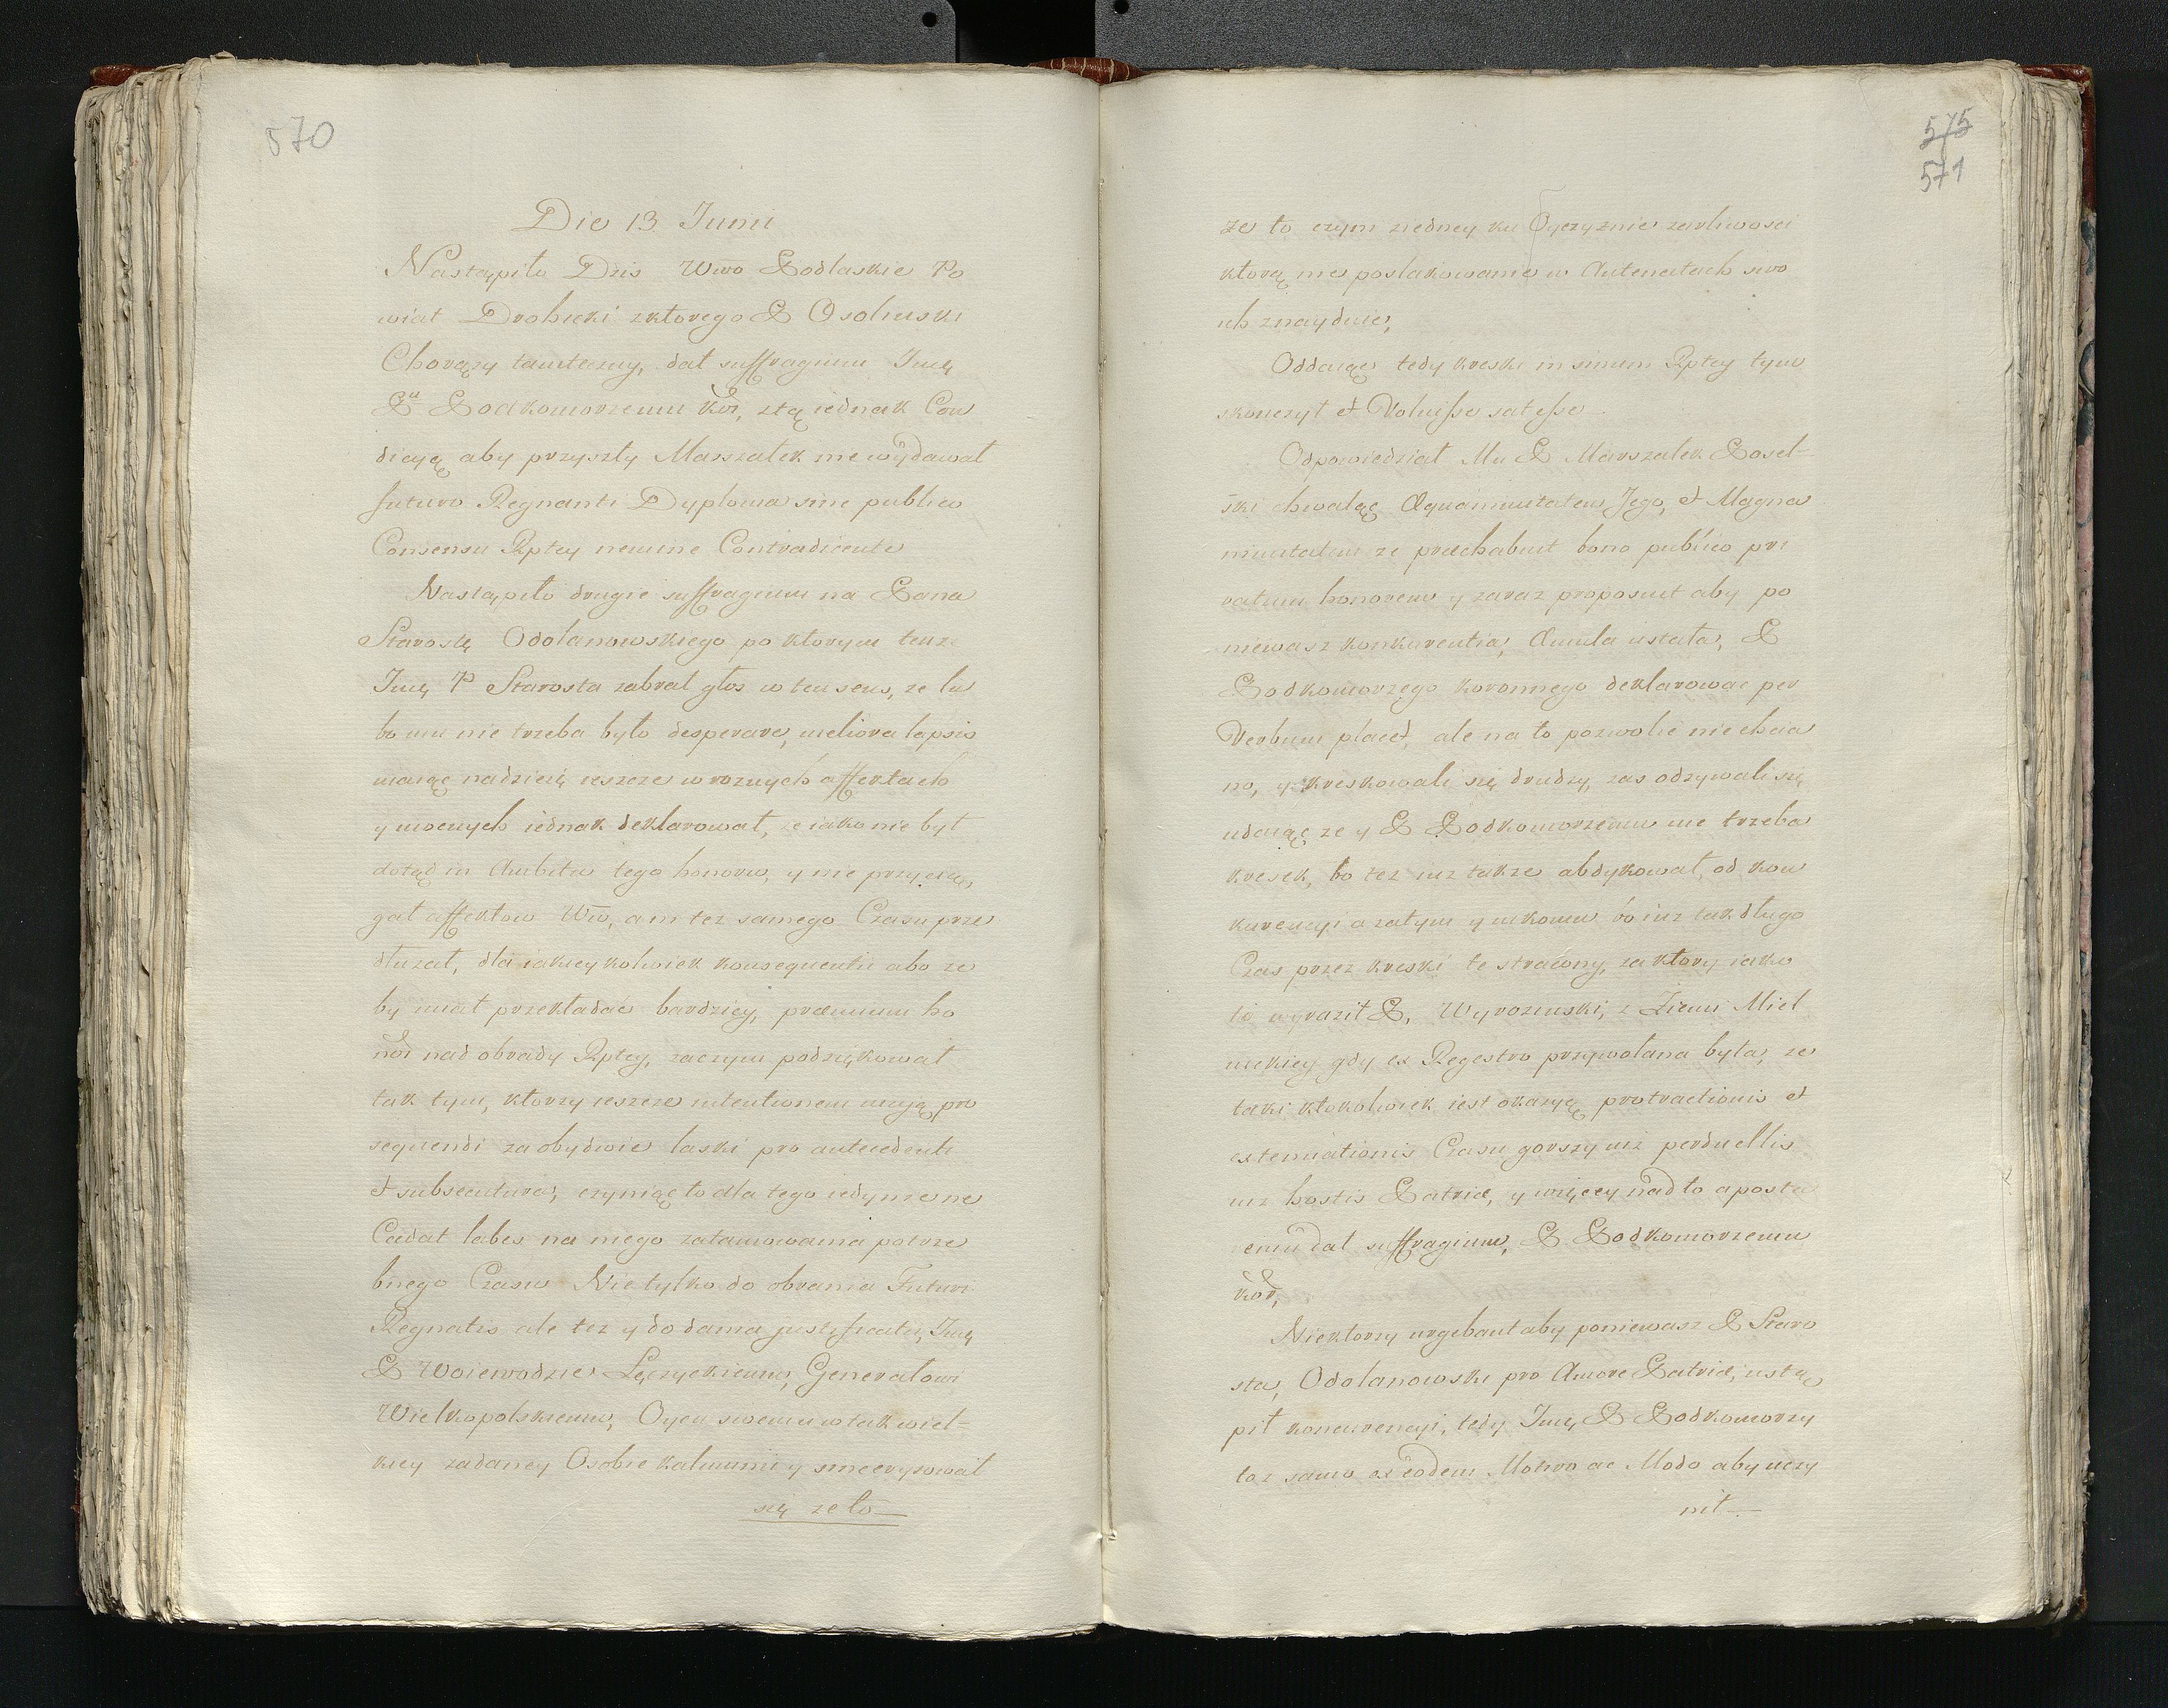 570
Die 13 Junii
Nastąpiło Dzis Wwo Podlaskie Po
wiat Drohicki zktorego P Osolinski
Chorąży tamteczny, dał suffragium Jmę
Pu Podkomorzemu kor, ztą iednak Con
dicyą aby przyszły Marszałek nie wydawał
futuro Regnanti Dyploma sine publico
Consensu Rptey nemine Contradicente
Nastąpiło drugie suffragium na Pana
Starostę Odolanowskiego po ktorym tenze
Jmę P Starosta zabrał głos w ten sens, ze lu
bo mu nie trzeba było desperare, meliora lapsis
maiąc nadzieię ieszcze w roznych affektach
y mocnych iednak deklarował, ze iako nie był
dotąd in Ambitu tego honoru, y nie przycią,
gał affektow Ww, ani tez samego Czasu prze
dłuzał, dla iakieykolwiek konsequentii abo ze
by miał przekładac bardziey, præmium ho
nor nad obrady Rptey, zaczym podziękował
tak tym, ktorzy ieszcze intentionem maią pro
sequendi za obydwie laski pro antecedenti
et subsecutura, czyniąc to dla tego iedynie ne
Cadat labes na niego zatamowania potrze
bnego Czasu Nie tylko do obrania Futuri
Regnatis ale tez y do dania justificatii, Jmę
P Woiewodzie Łęczyckiemu, Generałowi
Wielkopolskiemu, Oycu swemu w tak wiel=
kiey zadaney Osobie kalumnii y sincerysował
się ze to
575
571
ze to czyni ziedney ku Oyczyznie zarliwosci
ktorą nie poslakowanie w Antenatach swo
ich znayduie,
Oddaiąc tedy kreski in sinum Rptey tym
skonczył et Voluisse sat esse
Odpowiedział Mu P Marszałek Posel=
ski chwaląc Æquanimitatem Jego, et Magna
nimitatem ze præhabuit bono publico pri
vatum honorem y zaraz proposuit aby po
niewasz konkurentia, Æmula ustała, P
Podkomorzego koronnego deklarowac per
Verbum placet, ale na to pozwolic nie chcia
no, y kreskowali się drudzy, zas odzywali się
udaiąc ze y P Podkomorzemu nie trzeba
kresek, bo tez iuz takze abdykował, od kon
kurencyi a zatym y nikomu bo iuz tak długo
Czas przez kreski te straćony, za ktory iako
to wyraził P, Wyrozinski, z Ziemi Miel
nickiey gdy ex Regestro przywołana była, ze
taki ktokolwiek iest okazyą protractionis et
extenuationis Czasu gorszy niz perduellis
niz hostis Patriæ, y więcey nad to aposta
emu dał suffragium, P Podkomorzemu
kor,
Niektorzy urgebant aby poniewasz P Staro
sta, Odolanowski pro Amore Patriæ, ustą
pił koncurencyi, tedy Jmę P Podkomorzy
toz samo ex eodem Motivo ac Modo aby uczy
nił